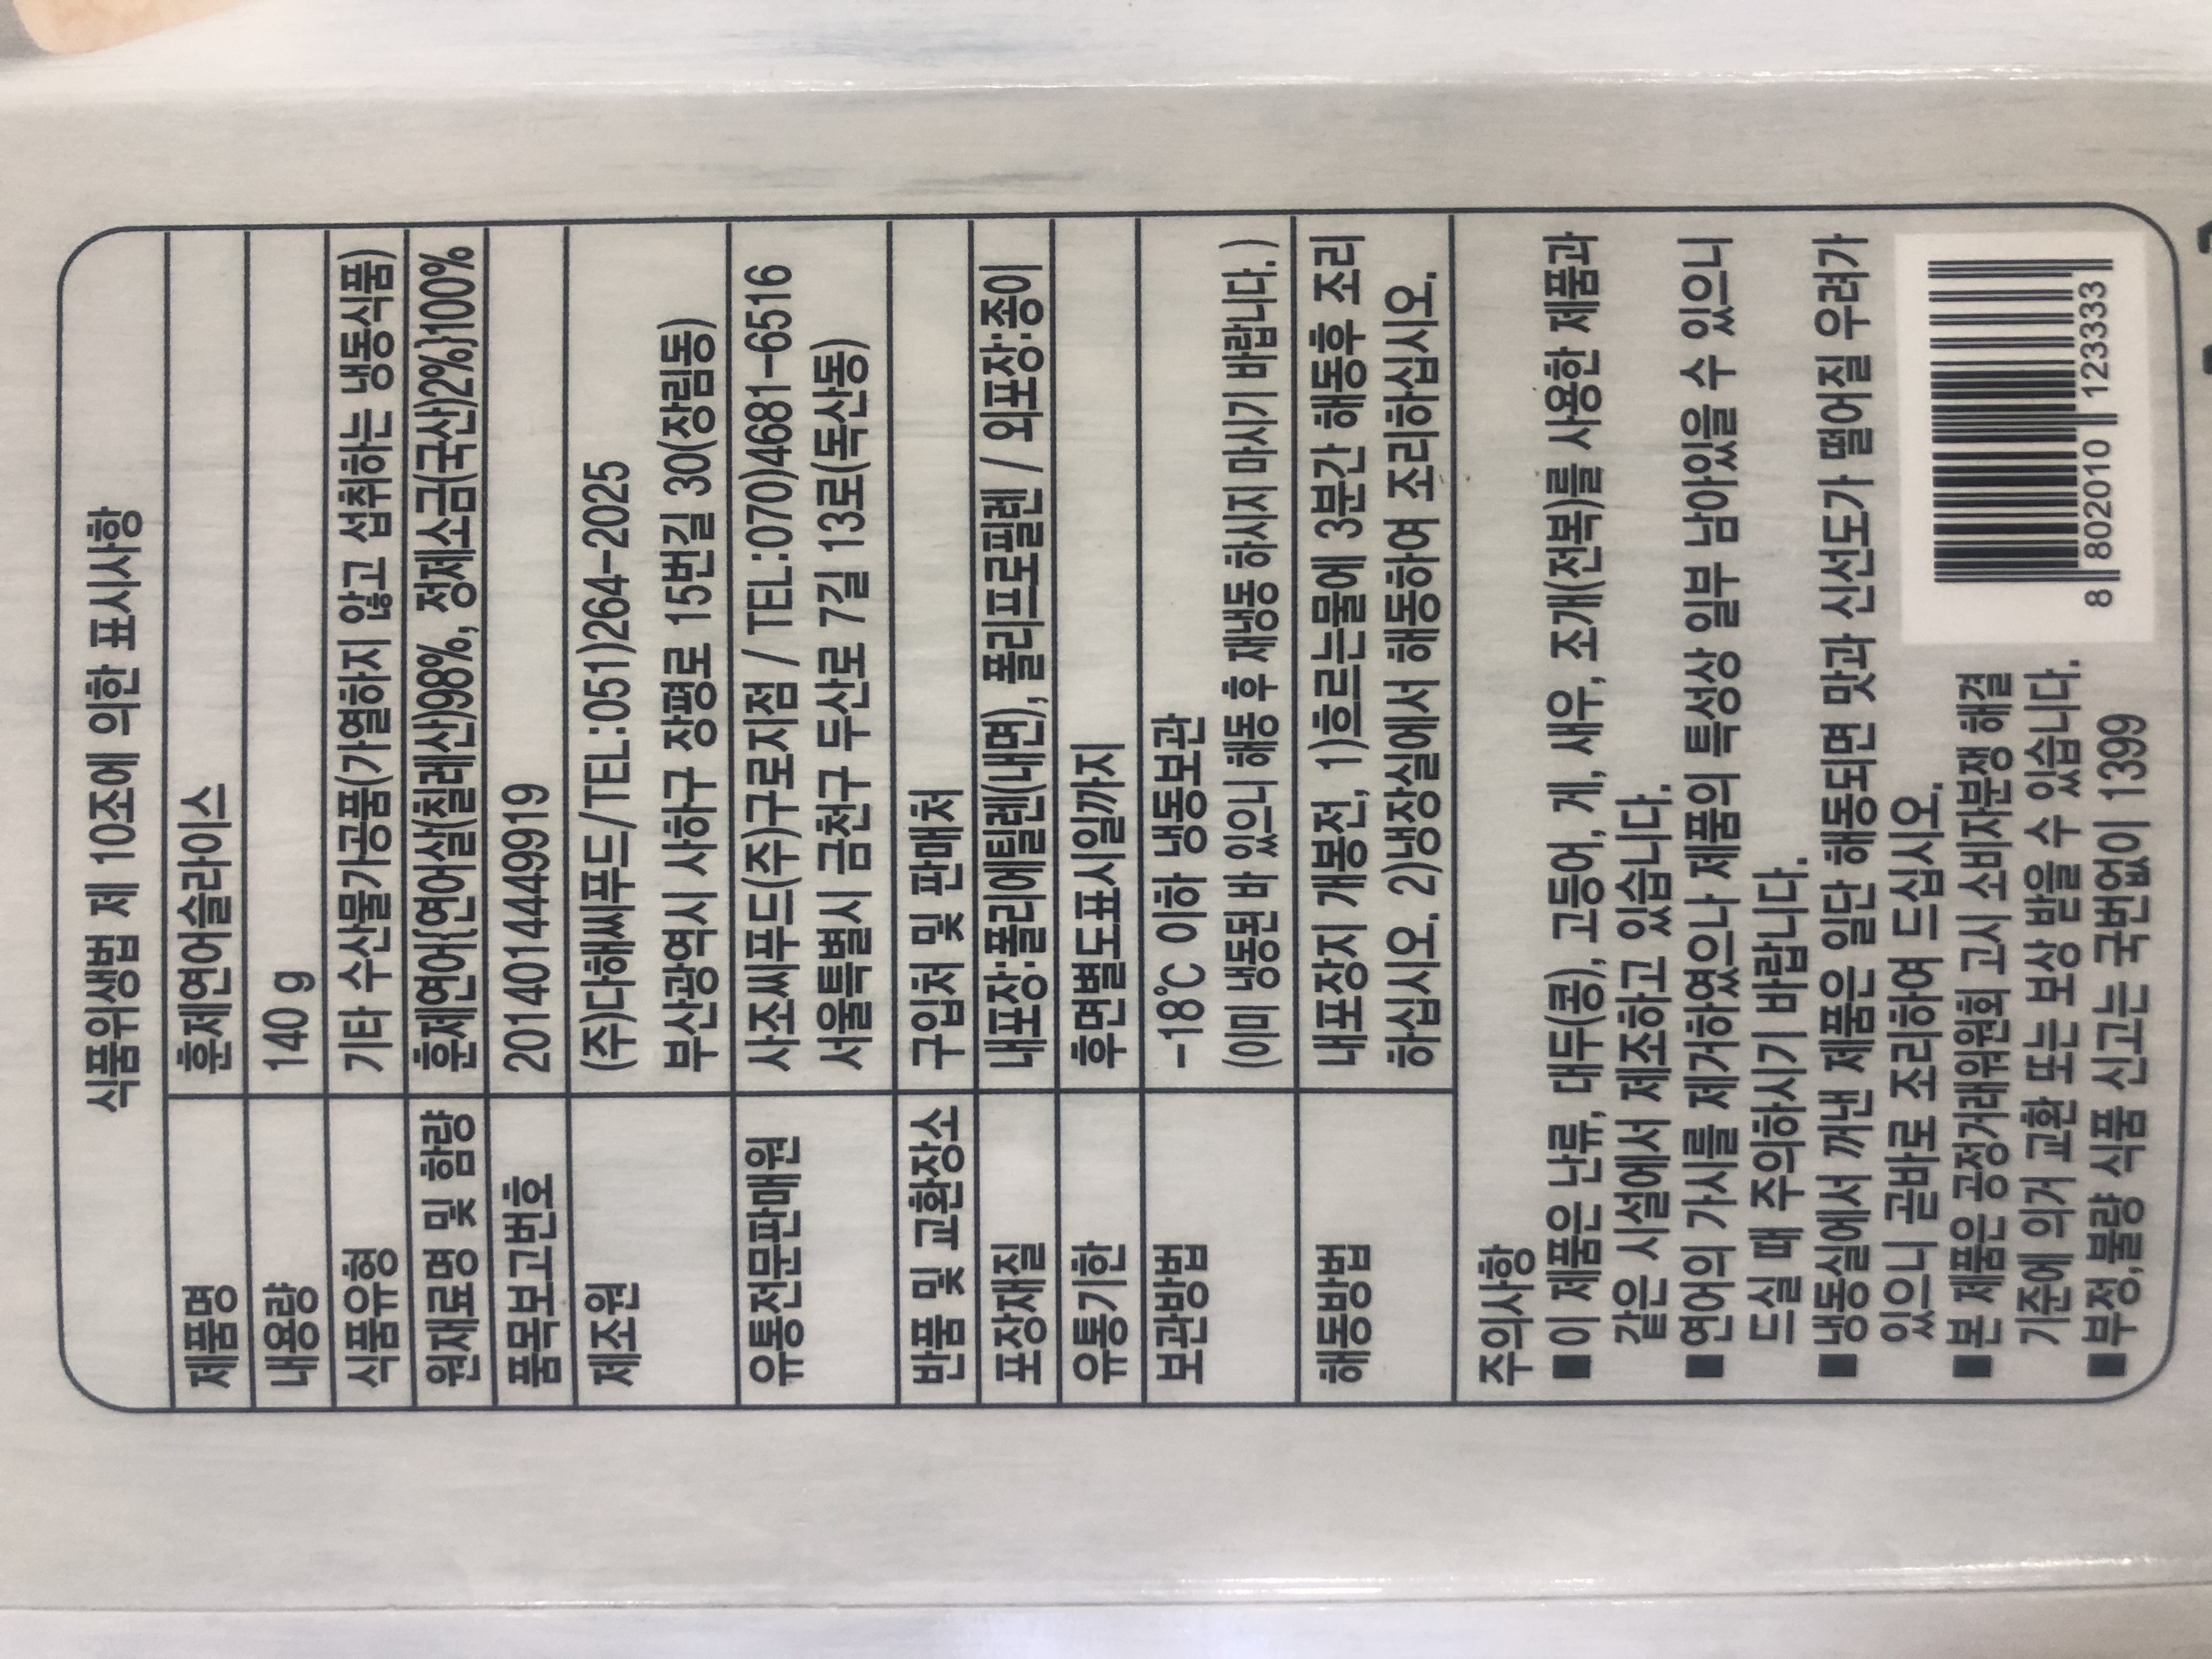 식품위생법 제 10조에 의한 표시사항
제품명 훈제연어슬라이스
내용량 140 g
식품유형 기타 수산물가공품(가열하지 않고 섭취하는 냉동식품)
원재료명 및 함량 훈제연어{연어살(칠레산)98%, 정제소금(국산)2%}100%
품목보고번호 20140144499​19
제조원 (주)다해씨푸드/TEL:051)264-2025
부산광역시 사하구 장평로 15번길 30(장림동)
유통전문판매원 사조씨푸드(주)구로지점 / TEL:070)4681-6516
서울특별시 금천구 두산로 7길 13로(독산동)
반품 및 교환장소 구입처 및 판매처
포장재질 내포장:폴리에틸렌(내면), 폴리프로필렌 / 외포장:종이
유통기한 후면별도표시일까지
보관방법 -18℃ 이하 냉동보관
(이미 냉동된 바 있으니 해동 후 재냉동 하시지 마시기 바랍니다.)
해동방법 내포장지 개봉전, 1)흐르는물에 3분간 해동후 조리
하십시오. 2)냉장실에서 해동하여 조리하십시오.
주의사항
■이 제품은 난류, 대두(콩), 고등어, 게, 새우, 조개(전복)를 사용한 제품과
같은 시설에서 제조하고 있습니다.
■연어의 가시를 제거하였으나 제품의 특성상 일부 남아있을 수 있으니
드실 때 주의하시기 바랍니다.
■냉동실에서 꺼낸 제품은 일단 해동되면 맛과 신선도가 떨어질 우려가
있으니 곧바로 조리하여 드십시오.
■본 제품은 공정거래위원회 고시 소비자분쟁 해결
기준에 의거 교환 또는 보상 받을 수 있습니다.
■부정,불량 식품 신고는 국번없이 1399
8 802010 123333